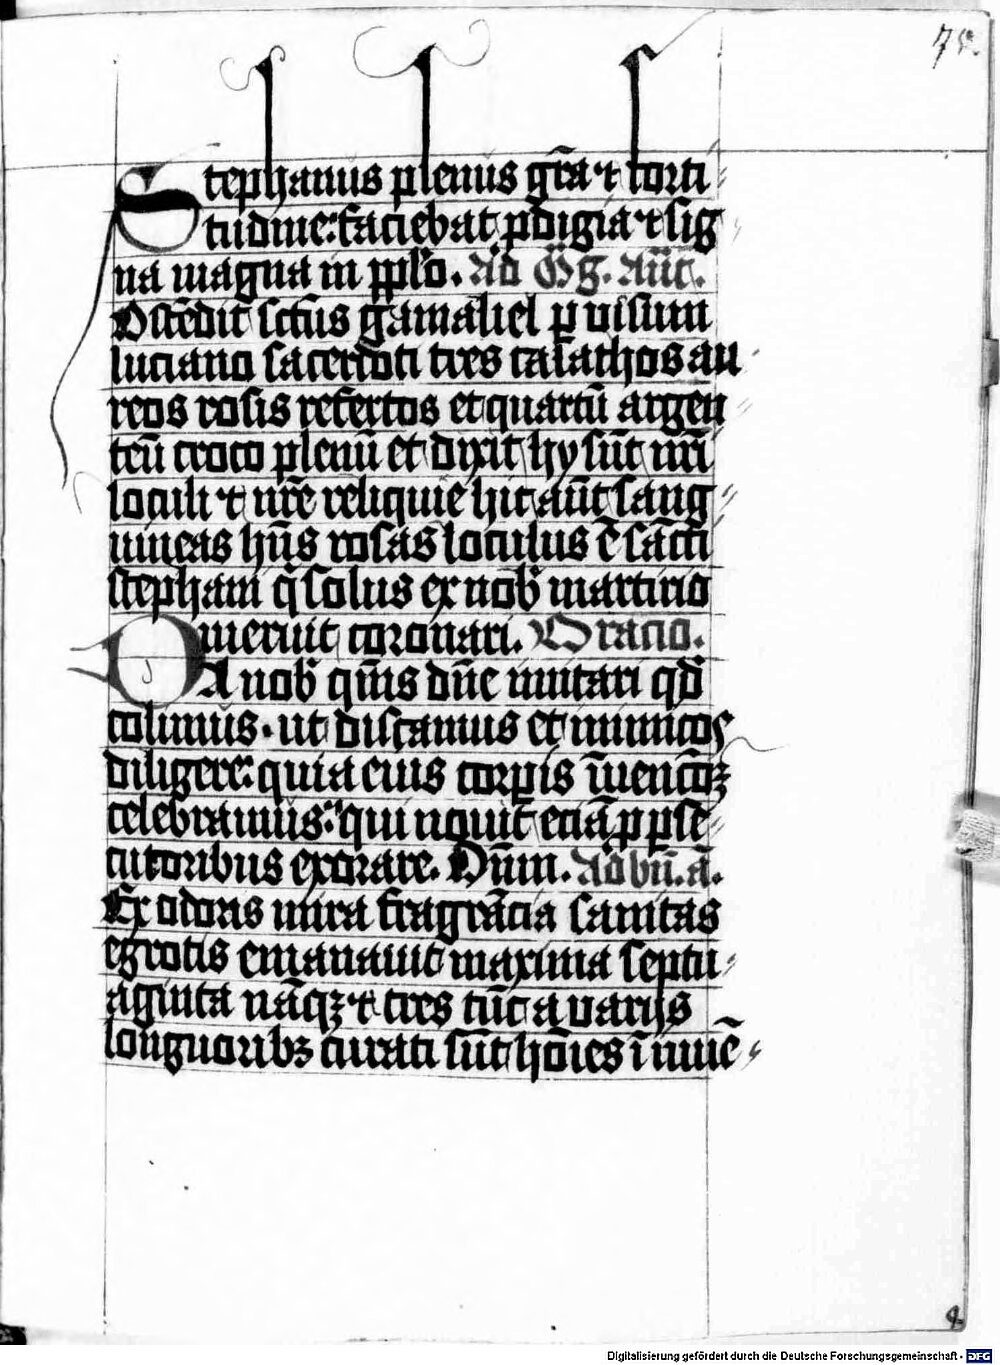 72.
Stephanus plenus gr̄a ⁊ forti
tudine: faciebat ꝓdigia ⁊ sig
na magna in pplo. Ad M̄g. Añt.
Ostēdit sctūs gamaliel ꝑ uisum
luciano sacerdoti tres calathos au
reos rosis refertos et quartū argen
teū croco plenū et dixit hy sūt nr̄i
loculi ⁊ nr̄e reliquie hic aūt sang
uineas hn̄s rosas loculus ē sācti
stephani q̄ solus ex nob̄ martirio
meruit coronari. Oracio.
DA nob̄ qm̄s dn̄e imitari qd̄
colimus. ut discamus et inimicos
diligere: quia eius corꝑis īuencōꝫ
celebramus: qui nouit eciā ꝓ ꝑse
cutoribus exorare. Dn̄m. Ad bn̄. a.
Ex odoris mira fragrācia sanitas
egrotis emanauit maxima septu
aginta nāqꝫ ⁊ tres tūc a varijs
longuoribꝫ curati sūt hoīes ī inuē
Digitalisierung gefördert durch die Deutsche Forschungsgemeinschaft - DFG